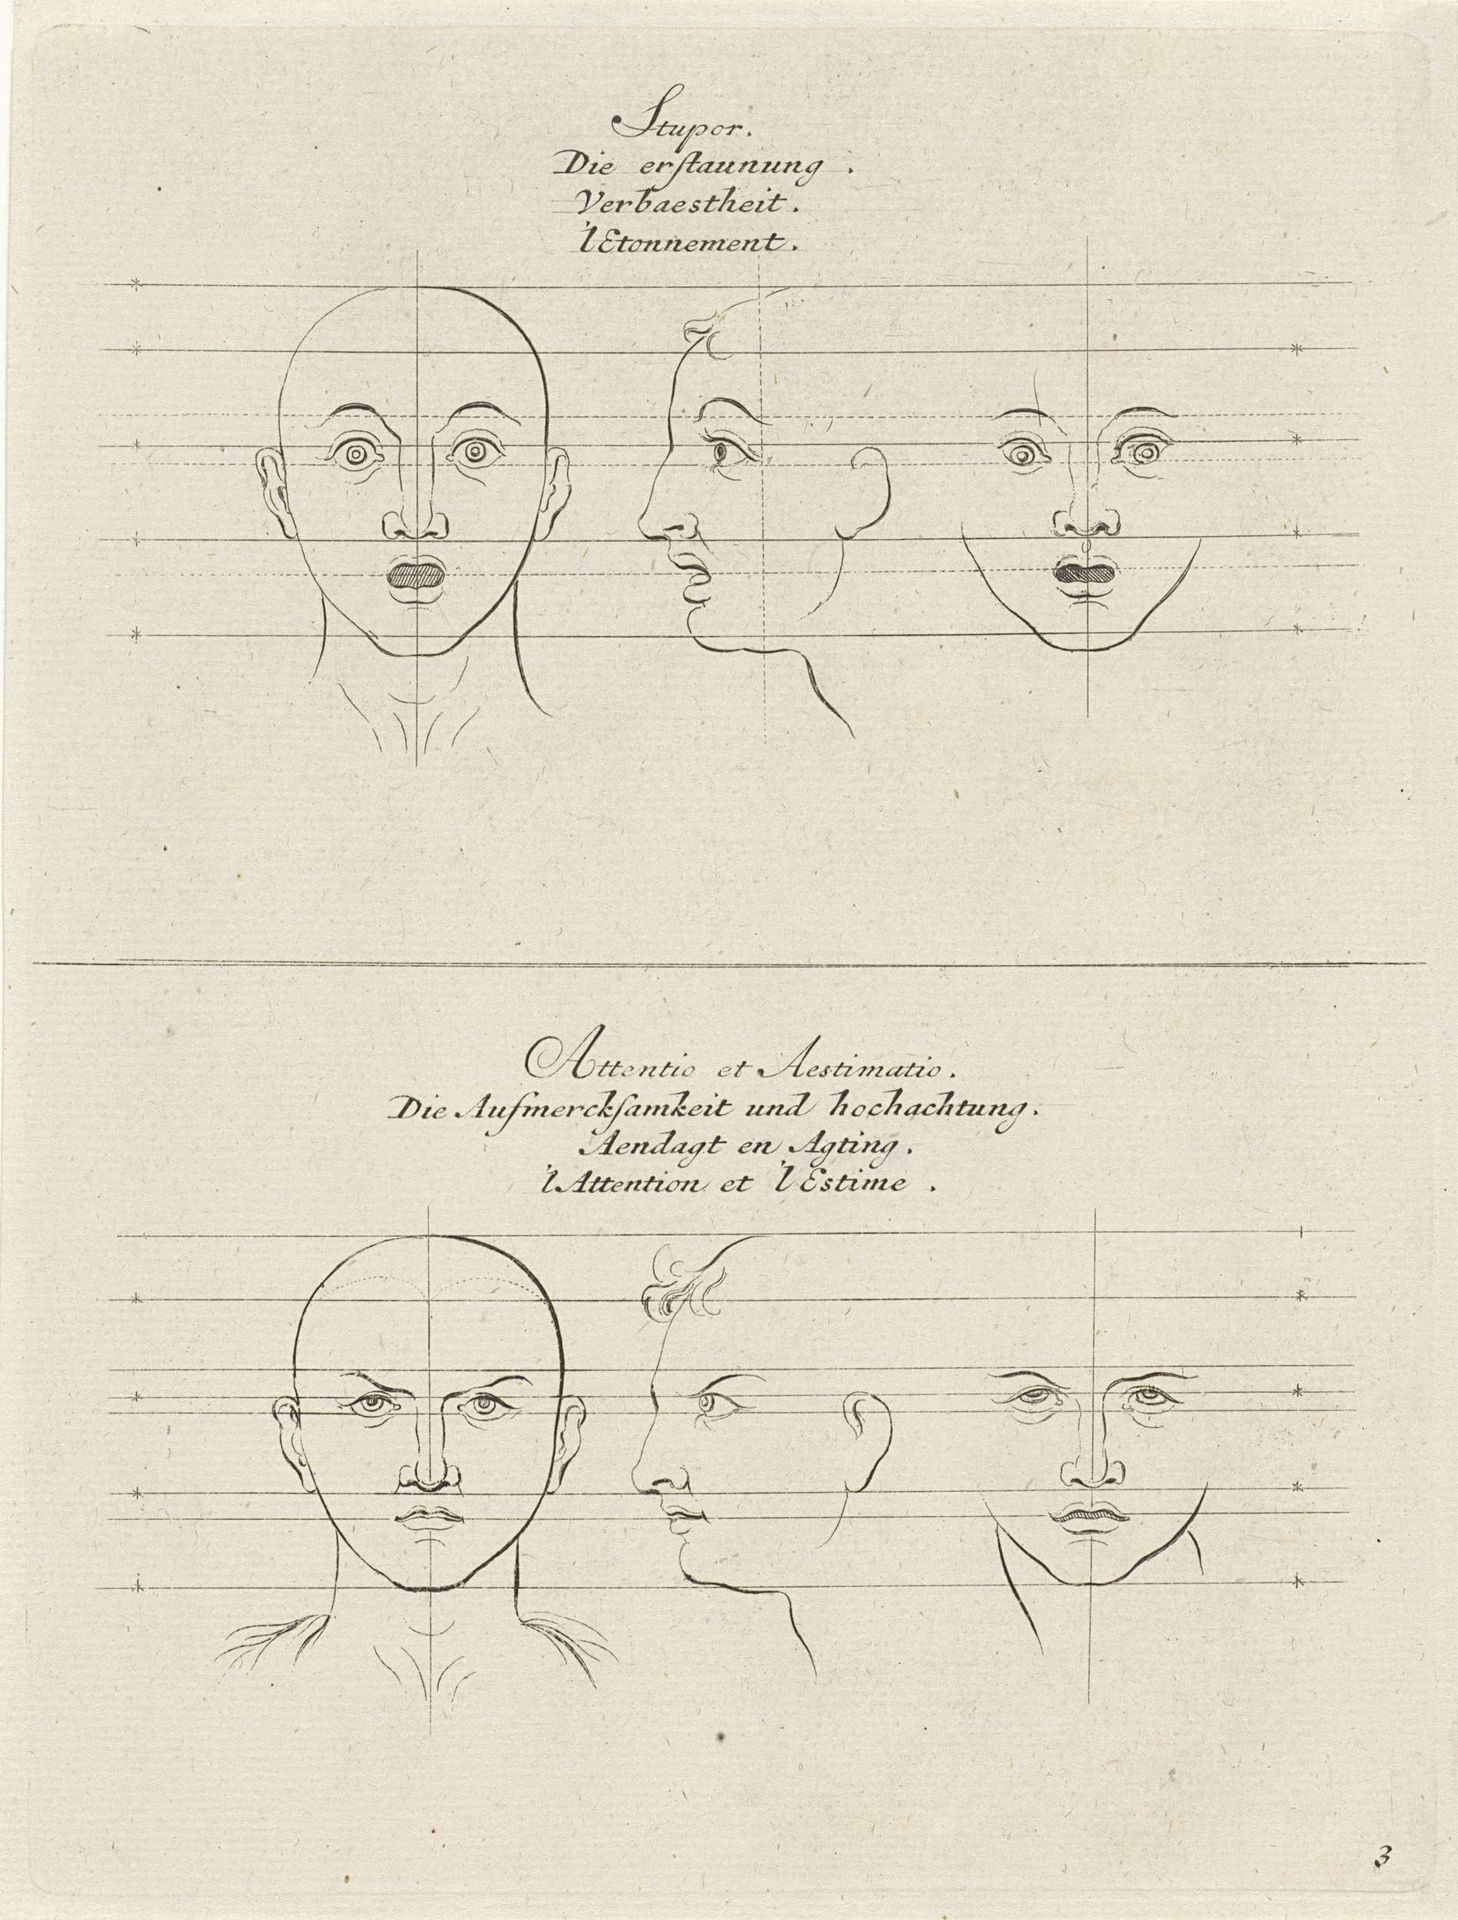 Stupor.
Die erſtaunung.
Verbaestheit.
'lEtonnement.
Attentio et Aestimatio.
Die Aufmerckſamkeit und hochachtung.
Aendagt en Agting.
'lAttention et 'lEstime.
3